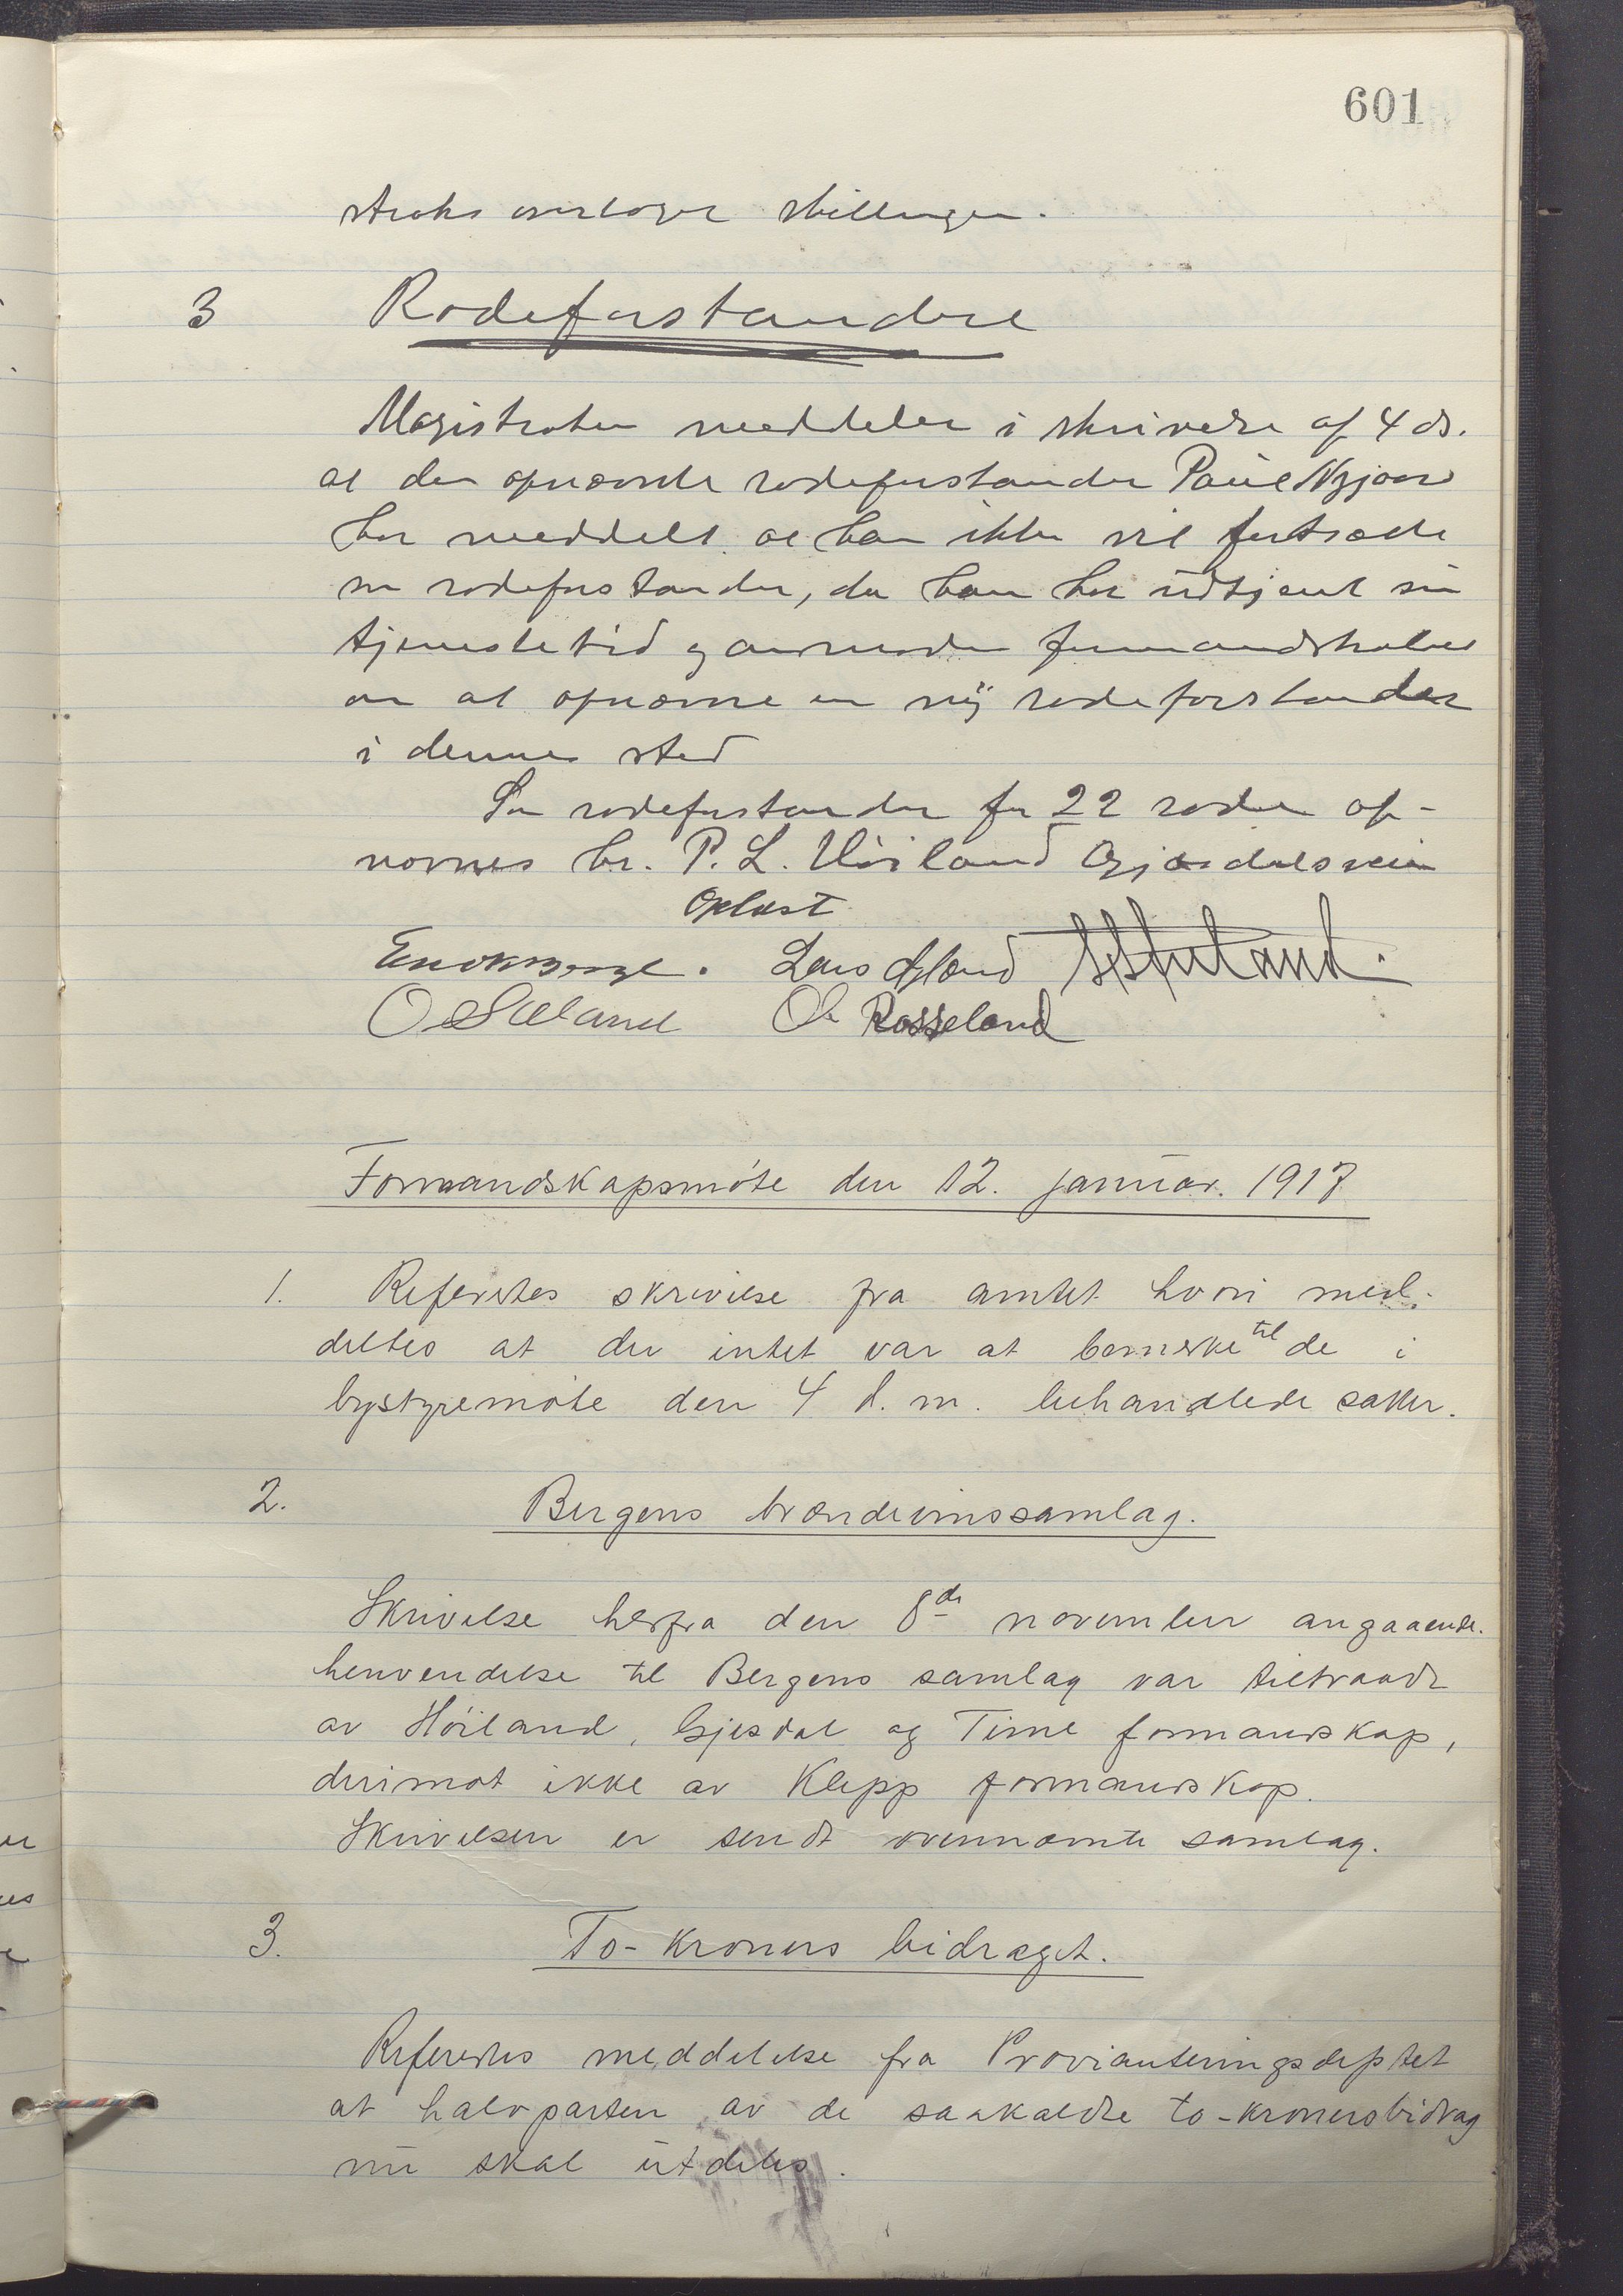 601
straks overtager stillingen.
3 Rodeforstandere
Magistraten meddeler i skrivelse af 4 ds.
at den opnævnte rodeforstander Paul Nygaard
har meddelt at han ikke vil fortsætte
som rodeforstander, da han har udtjent sin
tjenestetid og anmoder formandskabet
om at opnævne en ny rodeforstander
i dennes sted
Som rodeforstander for 22 rode op-
nævnes hr. P. L. Høiland Gjesdalsveien
Oplæst
Lars
O. Sæland Ol. Rosseland
Formandskapsmøte den 12. januar. 1917
1. Refertes skrivelse fra amtet hvori med-
deltes at der intet var at bemerke til de i
bystyremøte den 4 d. m. behandlede saker.
2. Bergens brændevinssamlag.
Skrivelse herfra den 8de november angaaende
henvendelse til Bergens samlag var tiltraadt
av Høiland, Gjesdal og Time formandskap,
derimot ikke av Klepp formandskap.
Skrivelsen er sendt ovennævnte samlag.
3. To-kroners bidraget.
Refertes meddelelse fra Provianteringsdeptet
at halvparten av de saakaldte to-kronersbidrag
nu skal utdeles.